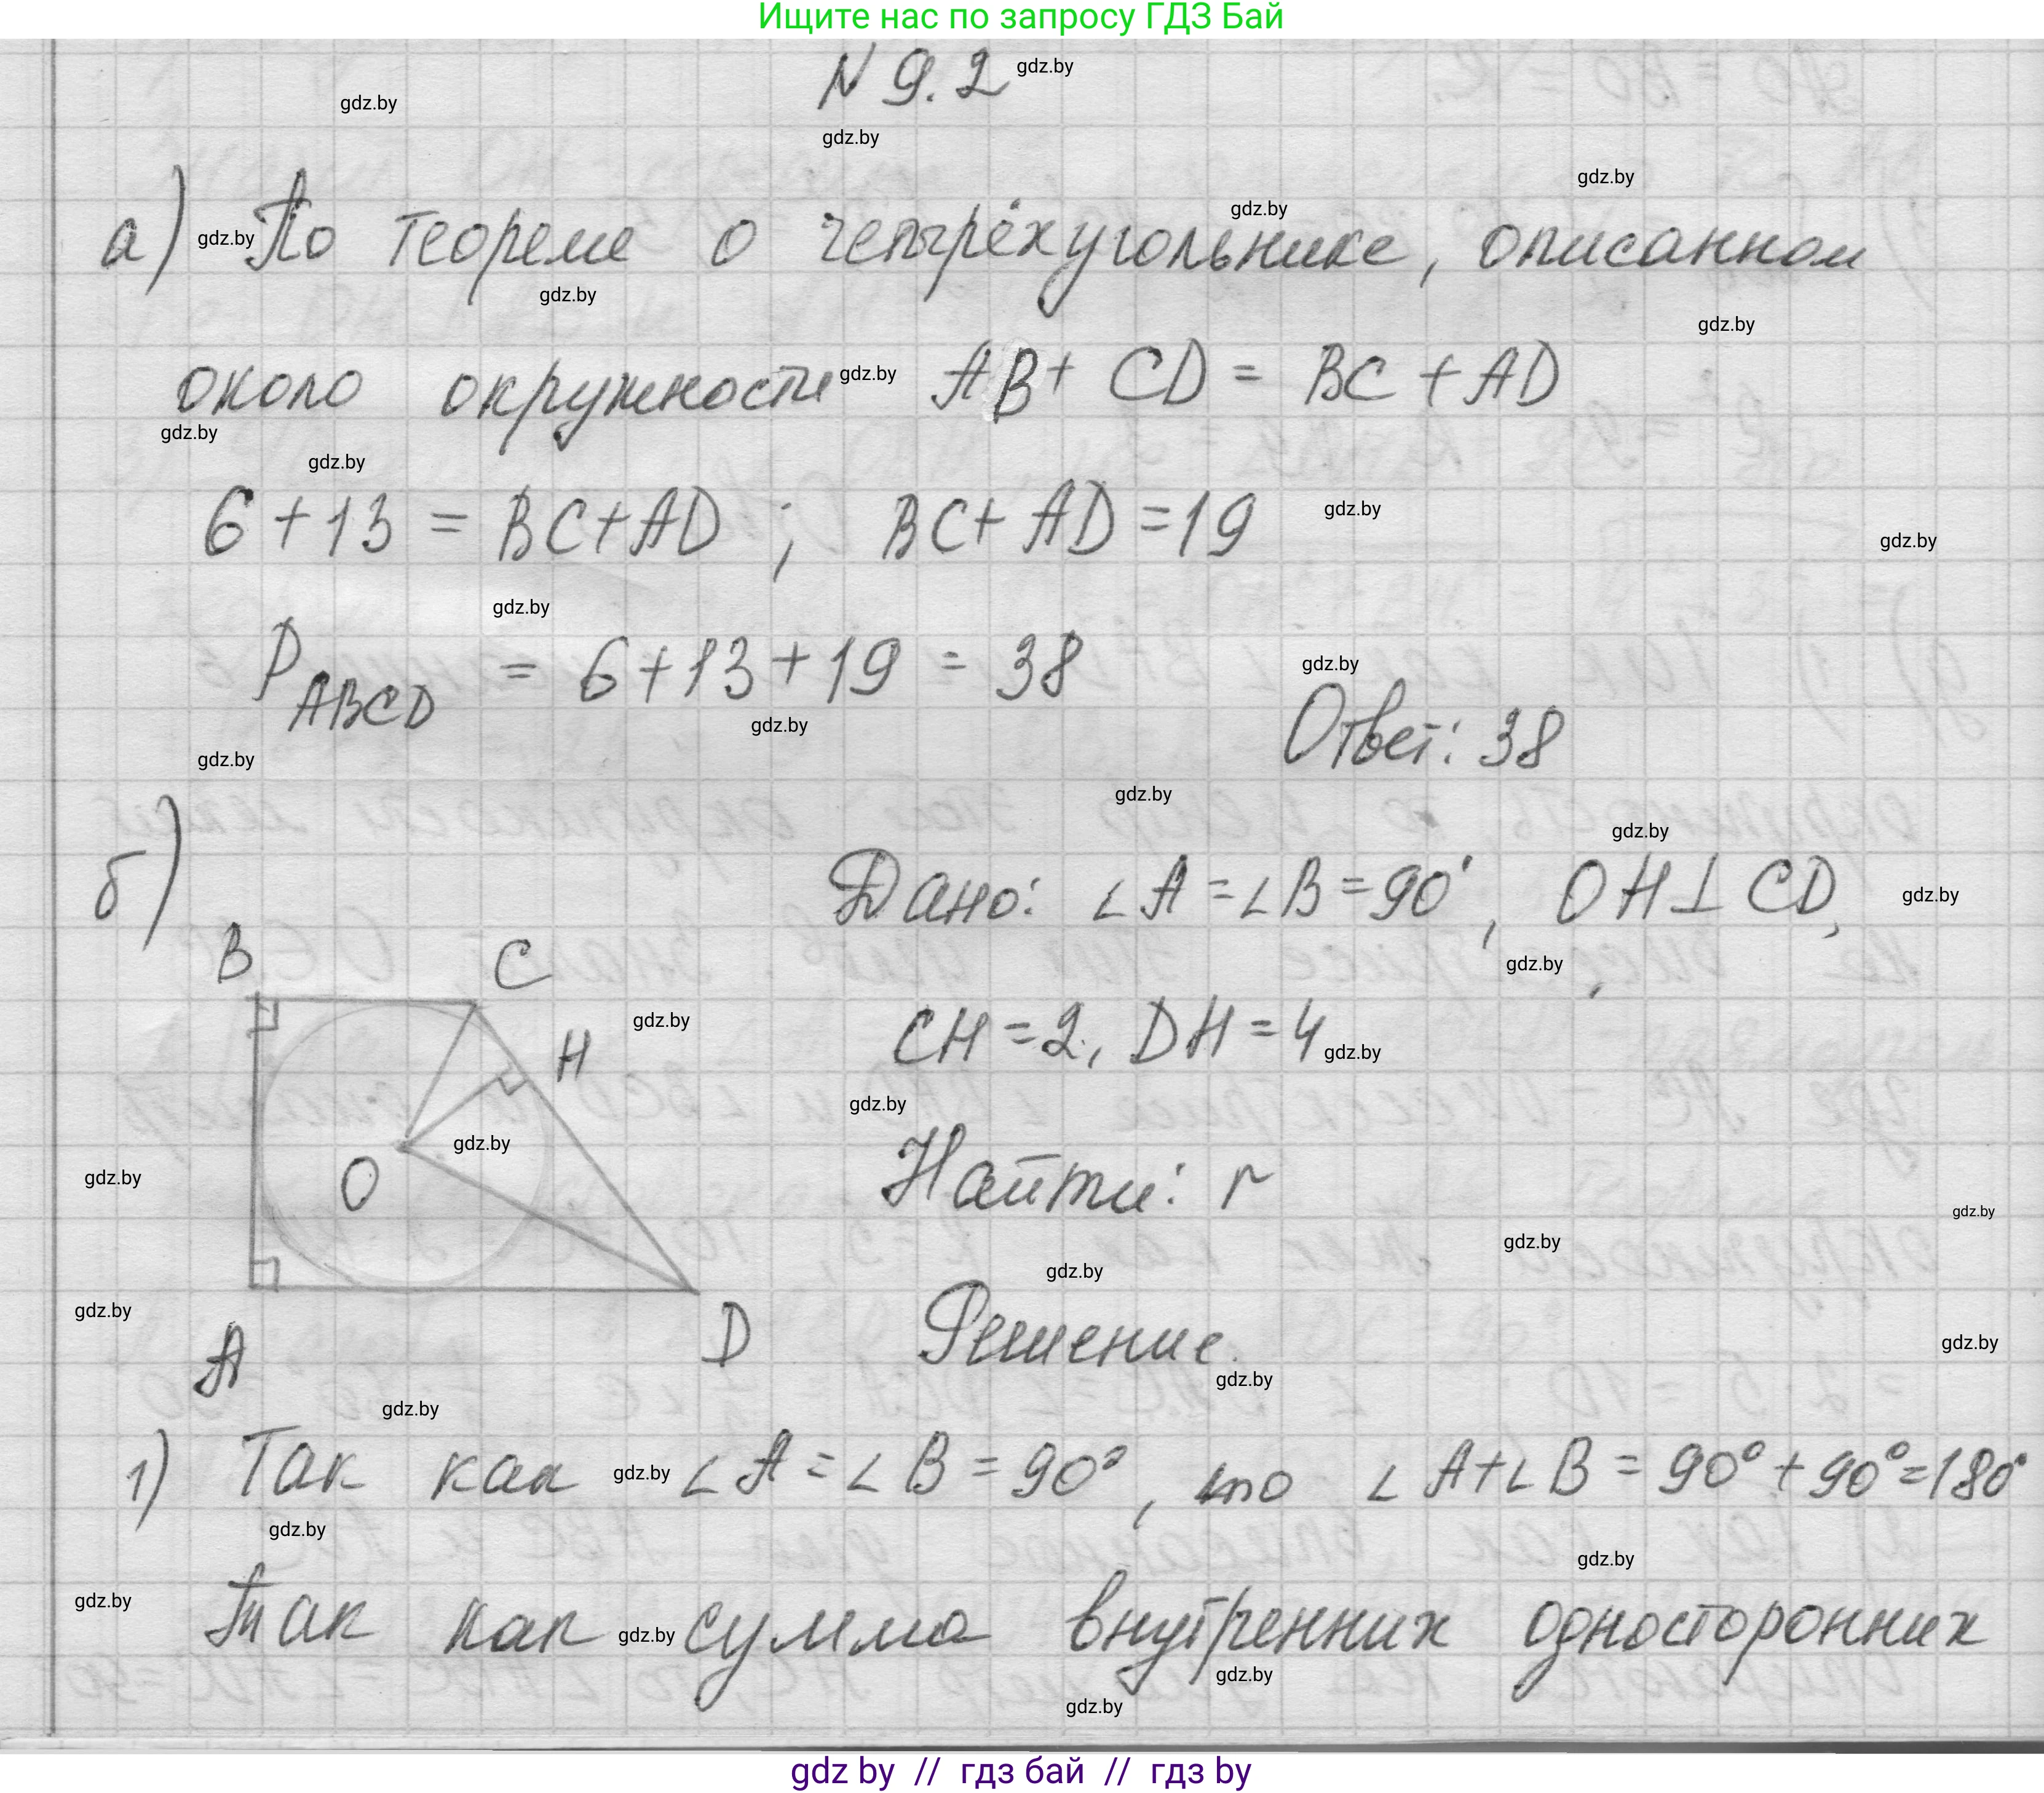 Ищите нас по запросу ГДЗ Бай
N 9.2
а) По теореме о четырёхугольнике, описанном
около окружности AB + CD = BC + AD
6 + 13 = BC + AD ; BC + AD = 19
P ABCD = 6 + 13 + 19 = 38
Ответ: 38
б)
Дано: ∠A = ∠B = 90°, OH ⊥ CD,
B
C
H
O
A
D
CH = 2, DH = 4
Найти: r
Решение.
1) Так как ∠A = ∠B = 90°, то ∠A + ∠B = 90° + 90° = 180°
Так как сумма внутренних односторонних
gdz by // гдз бай // гдз by
gdz.by